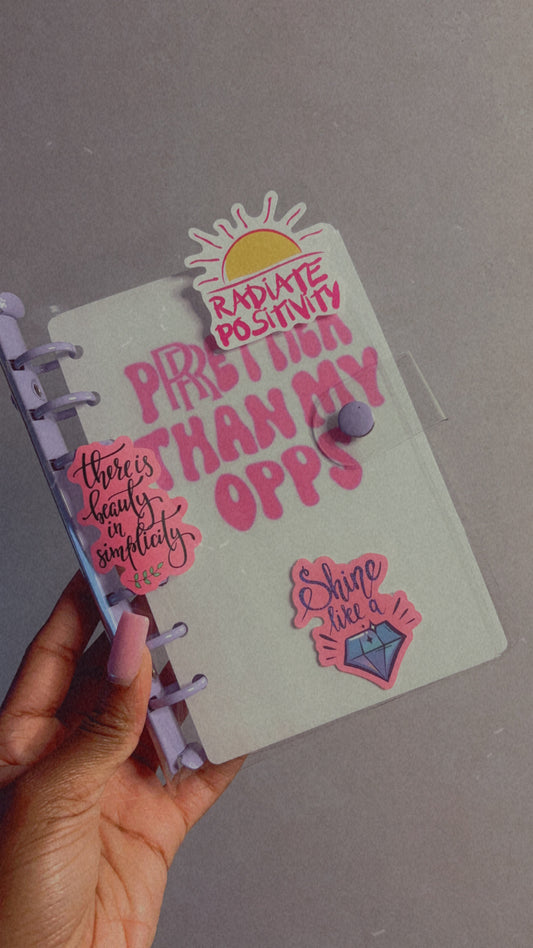 RADIATE
POSITIVITY
PRRETTIER
THAN MY
OPPS
there is
beauty
in
simplicity
Shine
like a